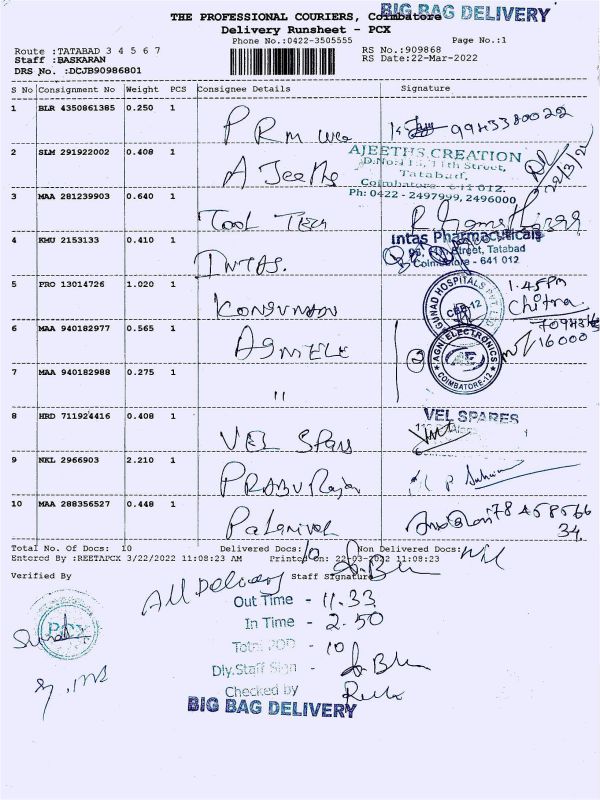 BIG BAG DELIVERY
THE PROFESSIONAL COURIERS, Coimbatore
Delivery Runsheet - PCX
Phone No.:0422-3505555 Page No.:1
Route :TATABAD 3 4 5 6 7 RS No.:909868
Staff :BASKARAN RS Date:22-Mar-2022
DRS No. :DCJB90986801
S No Consignment No Weight PCS Consignee Details Signature
1 BLR 4350861385 0.250 1 PRM 9943380022
2 SLM 291922002 0.408 1 A Jeeths
AJEETHS CREATION
D.No: 11th Street,
Tatabad,
Coimbatore - 641 012.
Ph: 0422 - 2497999, 2496000
22/3/22
3 MAA 281239903 0.640 1 Tool Tech
4 KMU 2153133 0.410 1 INTAS.
Intas Pharmaceuticals
Street, Tatabad
Coimbatore - 641 012
5 PRO 13014726 1.020 1
HOSPITALS PVT. LTD
CBE-12
1.45pm
Chitra
6 MAA 940182977 0.565 1 AGNI ELE
AGNI ELECTRONICS
AE
COIMBATORE-12
16000
7 MAA 940182988 0.275 1 "
8 HRD 711924416 0.408 1 VEL Spars
VEL SPARES
9 NKL 2966903 2.210 1 PRABU Raja
10 MAA 288356527 0.448 1 Palanivel 78 458566
34.
Total No. Of Docs: 10 Delivered Docs: 10 Non Delivered Docs: Nil
Entered By :REETAPCX 3/22/2022 11:08:23 AM Printed On: 22-03-2022 11:08:23 AM
Verified By Staff Signature
All Delivery
Out Time - 11.33
In Time - 2.50
Total POD - 10
Dly.Staff Sign -
Checked by
PCX
BIG BAG DELIVERY